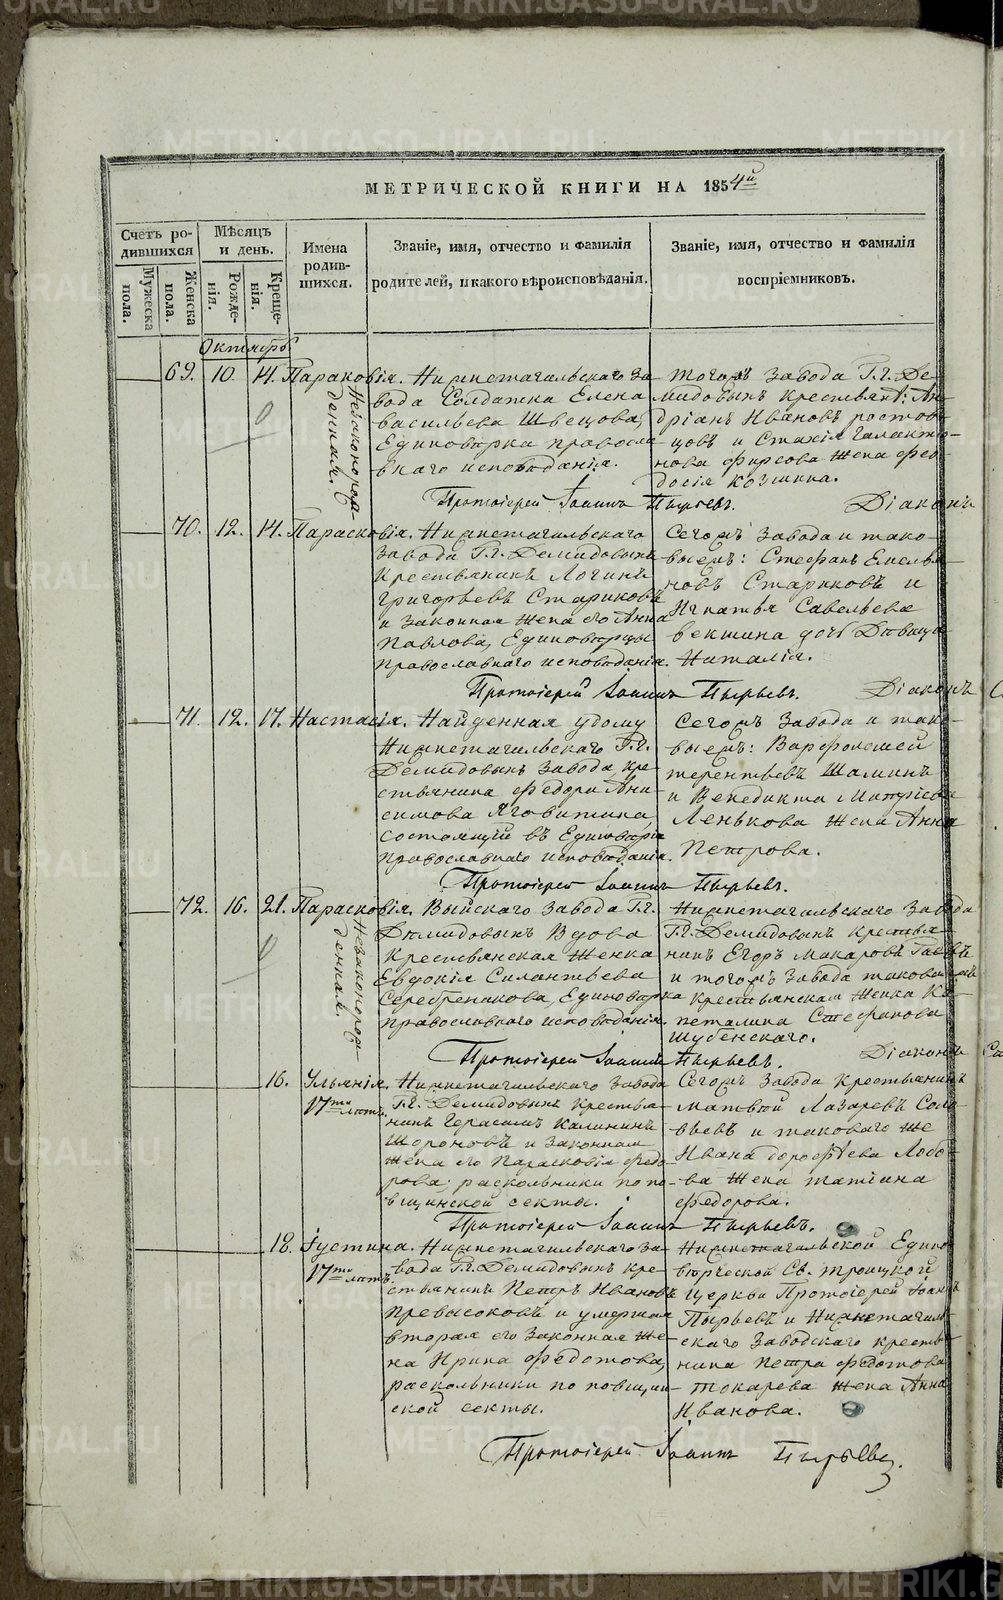 МЕТРИЧЕСКОЙ КНИГИ НА 1854й
Счетъ ро-
дившихся
Мужеска
пола.
Женска
пола.
Мѣсяцъ
и день.
Рожде-
нія.
Креще-
нія.
Имена
родив-
шихся.
Званіе, имя, отчество и фамилія
родителей, и какого вѣроисповѣданія.
Званіе, имя, отчество и фамилія
воспріемниковъ.
Октябрь
69. 10. 14. Парасковія.
Незаконорож-
денная.
Нижнетагильскаго За-
вода Солдатка Елена
Васильева Швецова,
Единовѣрка правосла-
внаго исповѣданія.
тогожъ завода Г.г. Де-
мидовыхъ крестьян: Ан-
дріанъ Ивановъ ростов-
цовъ и Галактіо-
нова фирсова жена Фео-
досія козмина.
Протоіерей Іоаннъ Пырьевъ. Діаконъ
70. 12. 14. Парасковія.
Нижнетагильскаго
завода Г.г. Демидовыхъ
Крестьянинъ Логинъ
григорьевъ Стариковъ
и законная жена его Анна
Павлова, Единовѣрцы
православнаго исповѣданія.
Сегожъ завода и тако-
выежъ: Стефанъ Емелья-
новъ Стариковъ и
Игнатья Савельева
векшина дочь Дѣвица
Наталія.
Протоіерей Іоаннъ Пырьевъ. Діаконъ
71. 12. 17. Настасія.
Найденная у дому
Нижнетагильскаго Г.г.
Демидовыхъ завода кре-
стьянина федора Ани-
симова Яговитина,
состоящій въ Единовѣріи
православнаго исповѣданія.
Сегожъ завода и тако-
выежъ: Варфоломей
терентьевъ Шалинъ
и Венедикта
Ленькова жена Анна
Петрова.
Протоіерей Іоаннъ Пырьевъ.
72. 16. 21. Парасковія.
Незаконорож-
денная.
Выйскаго завода Г.г.
Демидовыхъ Вдова
Крестьянская женка
Евдокія Силантьева
Серебренникова, Единовѣрка
православнаго исповѣданія.
Нижнетагильскаго завода
Г.г. Демидовыхъ крестья-
нинъ Егоръ Макаровъ
и тогожъ завода таковая же
крестьянская женка Ка-
питалина Стефанова
Шубенскаго.
Протоіерей Іоаннъ Пырьевъ. Діаконъ
16. Ульянія.
17ти лѣтъ.
Нижнетагильскаго завода
Г.г. Демидовыхъ крестья-
нинъ Герасимъ Калининъ
Шороновъ и законная
жена его Парасковія федо-
рова, раскольники по по-
вщинской секты.
Сегожъ завода крестьянинъ
матвѣй Лазаревъ Соло-
вьевъ и таковаго же
Ивана дорофѣева Лобо-
ва жена татіана
федорова.
Протоіерей Іоаннъ Пырьевъ.
18. Іустина.
17ти лѣтъ.
Нижнетагильскаго за-
вода Г.г. Демидовыхъ кре-
стьянинъ Петръ Ивановъ
Превысоковъ и умершая
вторая его законная же-
на Ирина Федотова,
раскольники по повщин-
ской секты.
Нижнетагильской Едино-
вѣрческой Св. троицкой
церкви Протоіерей Іоаннъ
Пырьевъ и Нижнетагиль-
скаго Заводскаго крестья-
нина петра федотова
токарева жена Анна
Иванова.
Протоіерей Іоаннъ Пырьевъ.
METRIKI.GASO-URAL.RU